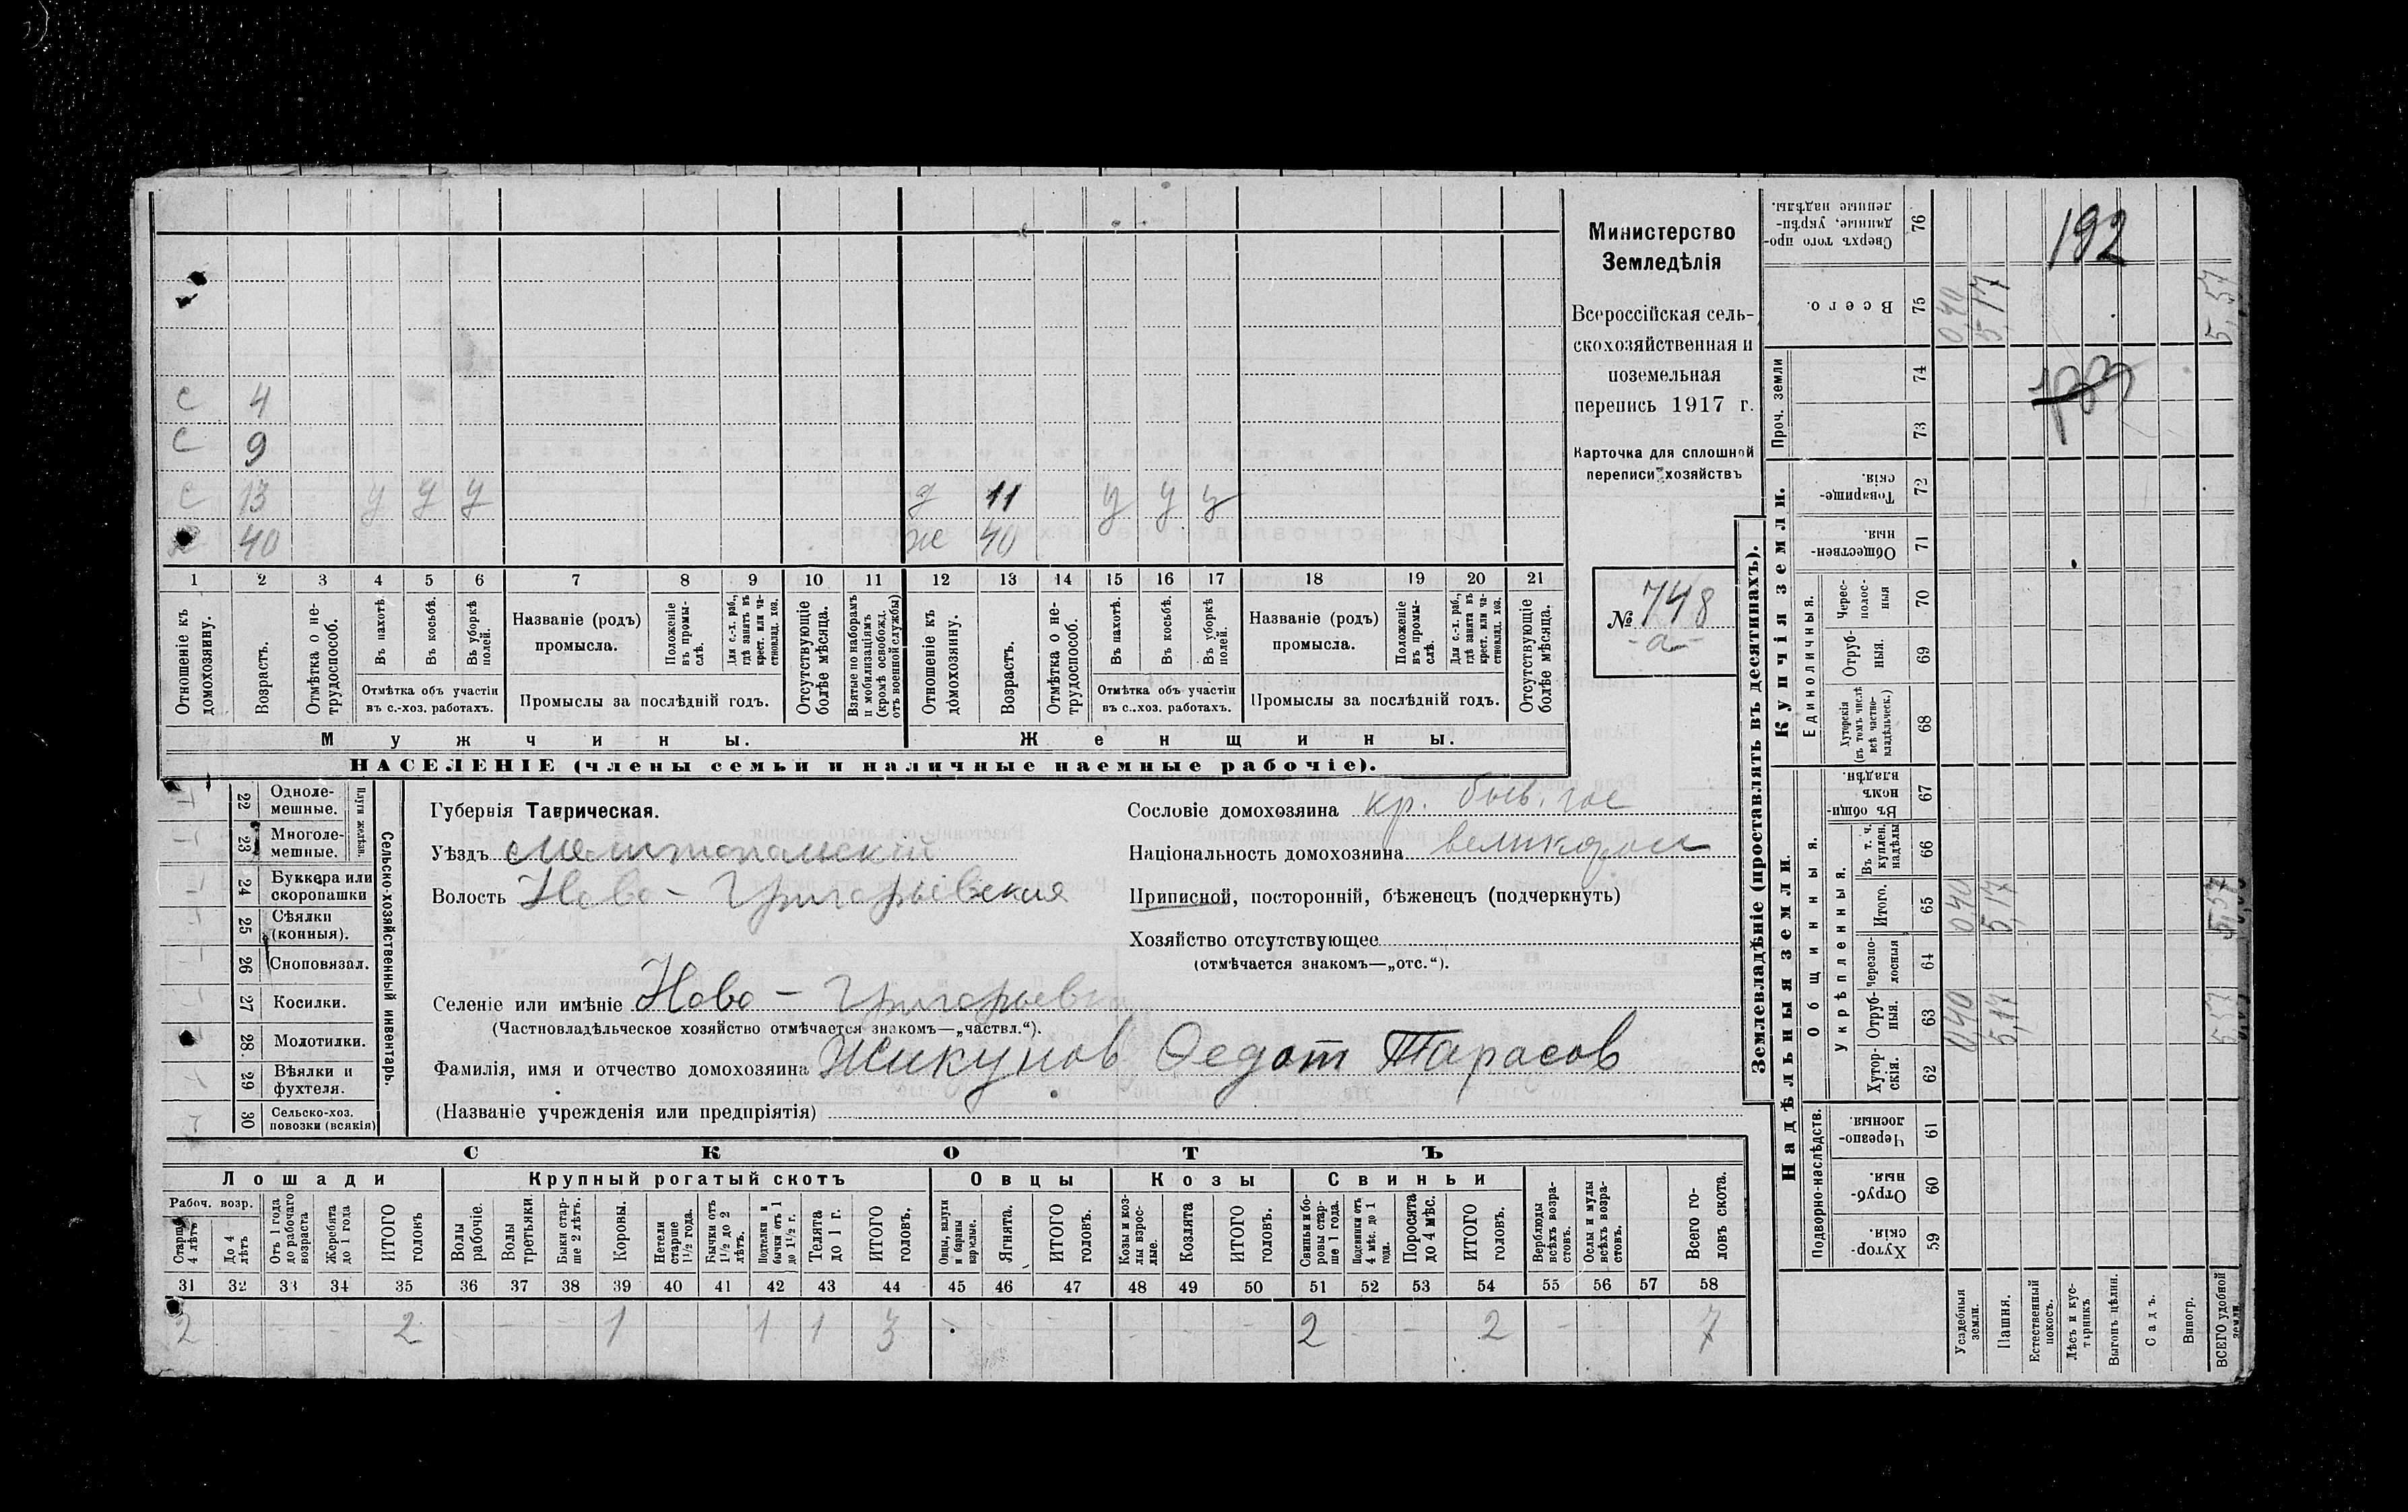 192
183
с 4
с 9
с 13 у у у д 11 у у у
х 40 ж 40
1 2 3 4 5 6 7 8 9 10 11 12 13 14 15 16 17 18 19 20 21
Отношеніе къ домохозяину.
Возрастъ.
Отмѣтка о не-трудоспособ.
Въ пахотѣ.
Въ косьбѣ.
Въ уборкѣ полей.
Отмѣтка объ участіи въ с.-хоз. работахъ.
Названіе (родъ) промысла.
Положеніе въ промы-слѣ.
Для с.-х. раб., гдѣ занятъ въ крест. или ча-стновлад. хоз.
Промыслы за послѣдній годъ.
Отсутствующіе болѣе мѣсяца.
Взятые по наборамъ и мобилизаціямъ (кромѣ освобожд. отъ военной службы)
Отношеніе къ домохозяину.
Возрастъ.
Отмѣтка о не-трудоспособ.
Въ пахотѣ.
Въ косьбѣ.
Въ уборкѣ полей.
Отмѣтка объ участіи въ с.-хоз. работахъ.
Названіе (родъ) промысла.
Положеніе въ промы-слѣ.
Для с.-х. раб., гдѣ занята въ крест. или ча-стновлад. хоз.
Промыслы за послѣдній годъ.
Отсутствующіе болѣе мѣсяца.
Мужчины. Женщины.
НАСЕЛЕНІЕ (члены семьи и наличные наемные рабочіе).
Министерство
Земледѣлія
Всероссійская сель-
скохозяйственная и
поземельная
перепись 1917 г.
Карточка для сплошной
переписи хозяйствъ
№ 748
-а-
22 Одноле-мешные.
23 Многоле-мешные.
Плуги желѣзн.
24 Буккера или скоропашки
25 Сѣялки (конныя).
26 Сноповязал.
27 Косилки.
28. Молотилки.
29 Вѣялки и фухтеля.
30 Сельско-хоз. повозки (всякія)
Сельско-хозяйственный инвентарь.
Губернія Таврическая.
Уѣздъ Мелитопольскій
Волость Ново-Григорьевская
Селеніе или имѣніе Ново-Григорьевка
(Частновладѣльческое хозяйство отмѣчается знакомъ—„частвл.“).
Фамилія, имя и отчество домохозяина Жикунов Федот Тарасов
(Названіе учрежденія или предпріятія)
Сословіе домохозяина кр. быв. гос
Національность домохозяина великоросс
Приписной, посторонній, бѣженецъ (подчеркнуть)
Хозяйство отсутствующее
(отмѣчается знакомъ—„отс.“).
СКОТЪ
Лошади Крупный рогатый скотъ Овцы Козы Свиньи
Рабоч. возр.
Старше 4 лѣтъ
До 4 лѣтъ
Отъ 1 года до рабочаго возраста
Жеребята до 1 года
ИТОГО головъ
Волы рабочіе.
Волы третьяки.
Быки стар-ше 2 лѣтъ.
Коровы.
Нетели старше 1½ года.
Бычки отъ 1½ до 2 лѣтъ.
Подтелки и бычки отъ 1 до 1½ г.
Телята до 1 г.
ИТОГО головъ.
Овцы, валухи и бараны взрослые.
Ягнята.
ИТОГО головъ.
Козы и коз-лы взрос-лые.
Козлята
ИТОГО головъ.
Свиньи и бо-ровы стар-ше 1 года.
Подсвинки отъ 4 мѣс. до 1 года.
Поросята до 4 мѣс.
ИТОГО головъ.
Верблюды всѣхъ возра-стовъ.
Ослы и мулы всѣхъ возра-стовъ.
Всего го-ловъ скота.
31 32 33 34 35 36 37 38 39 40 41 42 43 44 45 46 47 48 49 50 51 52 53 54 55 56 57 58
2 - - 2 - - - 1 - - 1 1 3 - - - - - - 2 - - 2 - - 7
Землевладѣніе (проставлять въ десятинахъ).
Надѣльныя земли. Купчія земли. Проч. земли
Подворно-наслѣдств.
Общинныя.
Укрѣпленныя.
Единоличныя.
59 Хутор-скія.
60 Отруб-ныя.
61 Черезпо-лосныя.
62 Хутор-скія.
63 Отруб-ныя.
64 Черезпо-лосныя
65 Итого.
66 Въ т. ч. куплен. надѣлы
67 Въ общи-номъ владѣн.
68 Хуторскія (въ томъ числѣ всѣ частно-владѣльческ.)
69 Отруб-ныя.
70 Черес-полос-ныя
71 Обществен-ныя.
72 Товарище-скія.
73
74
75 Всего.
76 Сверхъ того про-данные, укрѣп-ленные надѣлы.
Усадебныя земли. 0,40 0,40 0,40
Пашня. 5,17 5,17 5,17
Естественный покосъ.
Лѣсъ и кус-тарникъ
Выгонъ цѣлин.
Садъ.
Виногр.
ВСЕГО удобной земли. 5,57 5,57 5,57